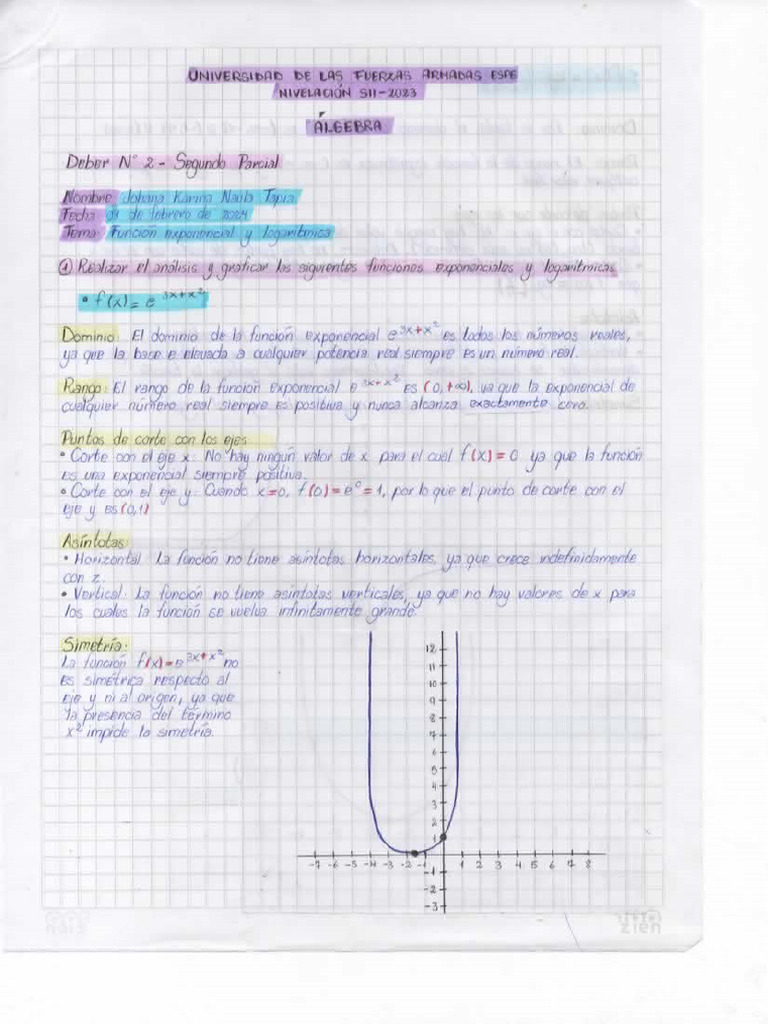 UNIVERSIDAD DE LAS FUERZAS ARMADAS ESPE
NIVELACIÓN SII-2023
ÁLGEBRA
Deber N° 2 - Segundo Parcial
Nombre: Johana Karina Naula Tapia
Fecha: 01 de febrero de 2024
Tema: Función exponencial y logarítmica
① Realizar el análisis y graficar las siguientes funciones exponenciales y logarítmicas.
• f(x) = e^3x+x²
Dominio: El dominio de la función exponencial e^3x+x² es todos los números reales,
ya que la base e elevada a cualquier potencia real siempre es un número real.
Rango: El rango de la función exponencial e^3x+x² es (0,+∞), ya que la exponencial de
cualquier número real siempre es positiva y nunca alcanza exactamente cero.
Puntos de corte con los ejes
• Corte con el eje x: No hay ningún valor de x para el cual f(x) = 0 ya que la función
es una exponencial siempre positiva.
• Corte con el eje y: Cuando x=0, f(0) = e^0 = 1, por lo que el punto de corte con el
eje y es (0,1)
Asíntotas:
• Horizontal: La función no tiene asíntotas horizontales, ya que crece indefinidamente
con x.
• Vertical: La función no tiene asíntotas verticales, ya que no hay valores de x para
los cuales la función se vuelva infinitamente grande.
Simetría:
La función f(x)=e^3x+x² no
es simétrica respecto al
eje y ni al origen, ya que
la presencia del término
x² impide la simetría.
12
11
10
9
8
7
6
5
4
3
2
1
-7 -6 -5 -4 -3 -2 -1 1 2 3 4 5 6 7 8
-1
-2
-3